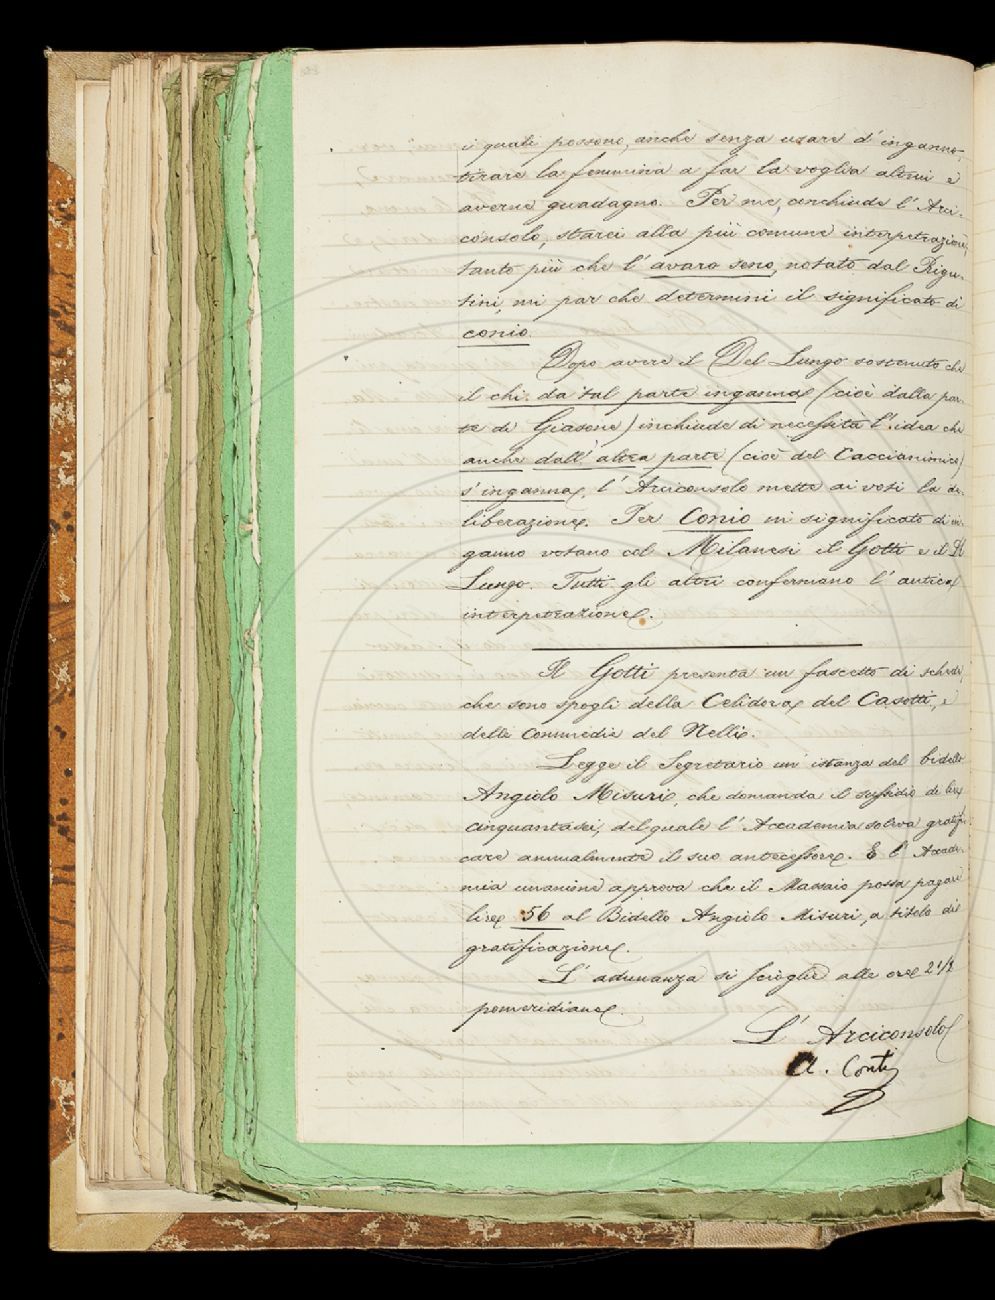 i quali possono, anche senza usare d'inganno,
tirare la femmina a far la voglia altrui e
averne guadagno. Per me, conchiude l'Arci-
consolo, starei alla più comune interpetrazione,
tanto più che l'avaro seno, notato dal Rigu-
tini, mi par che determini il significato di
conio.
Dopo avere il Del Lungo sostenuto che
il chi da tal parte inganna (cioè dalla par-
te di Giasone) inchiude di necessità l'idea che
anche dall'altra parte (cioè del Caccianimico)
s'inganna, l'Arciconsolo mette ai voti la de-
liberazione. Per Conio in significato di in-
ganno votano col Milanesi il Gotti e il Del
Lungo. Tutti gli altri confermano l'antica
interpetrazione.
Il Gotti presenta un fascetto di schede,
che sono spogli della Celidora, del Casotti, e
delle Commedie del Nelli.
Legge il Segretario un'istanza del bidello
Angiolo Misuri, che domanda il sussidio de lire
cinquantasei, del quale l'Accademia soleva gratifi-
care annualmente il suo antecessore. E l'Accade-
mia unanime approva che il Massaio possa pagare
lire 56 al Bidello Angiolo Misuri, a titolo di
gratificazione.
L'adunanza si scioglie alle ore 2 1/2
pomeridiane.
L'Arciconsolo
A. Conti